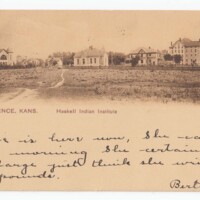 ENCE, KANS. Haskell Indian Institute
e is here now, She ca
morning She certain
ange just think she wi
pounds.
Bert